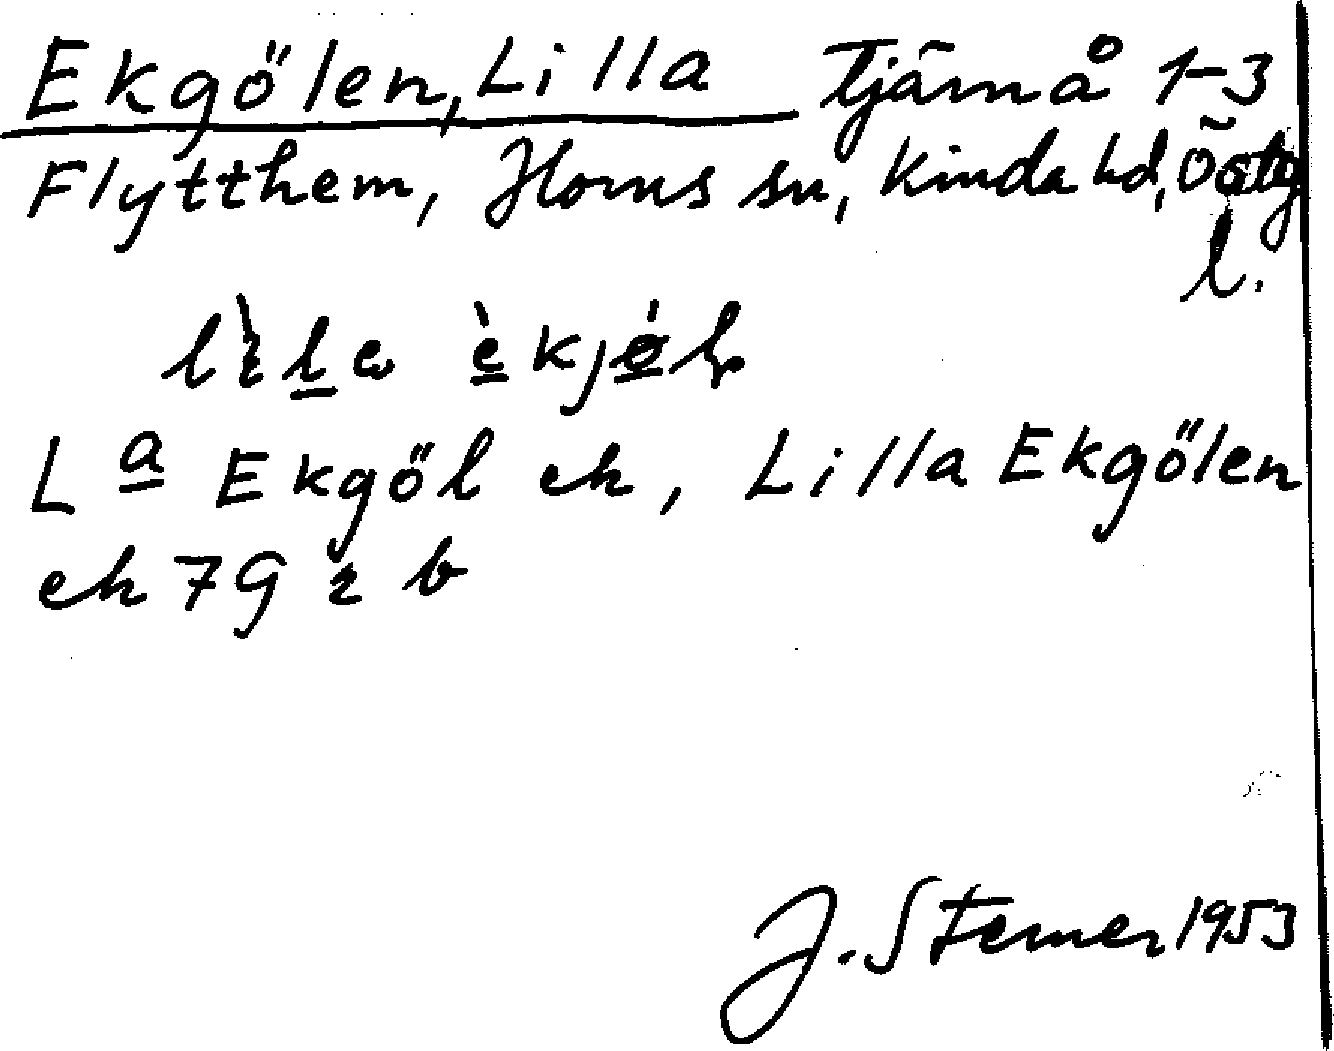 Ekgölen, Lilla Tjärnå 1-3
Flytthem, Horns sn, Kinda hd, Östg
l.
La Ekgöl ek, Lilla Ekgölen
ek 7G 2 b
J. Sterner 1953